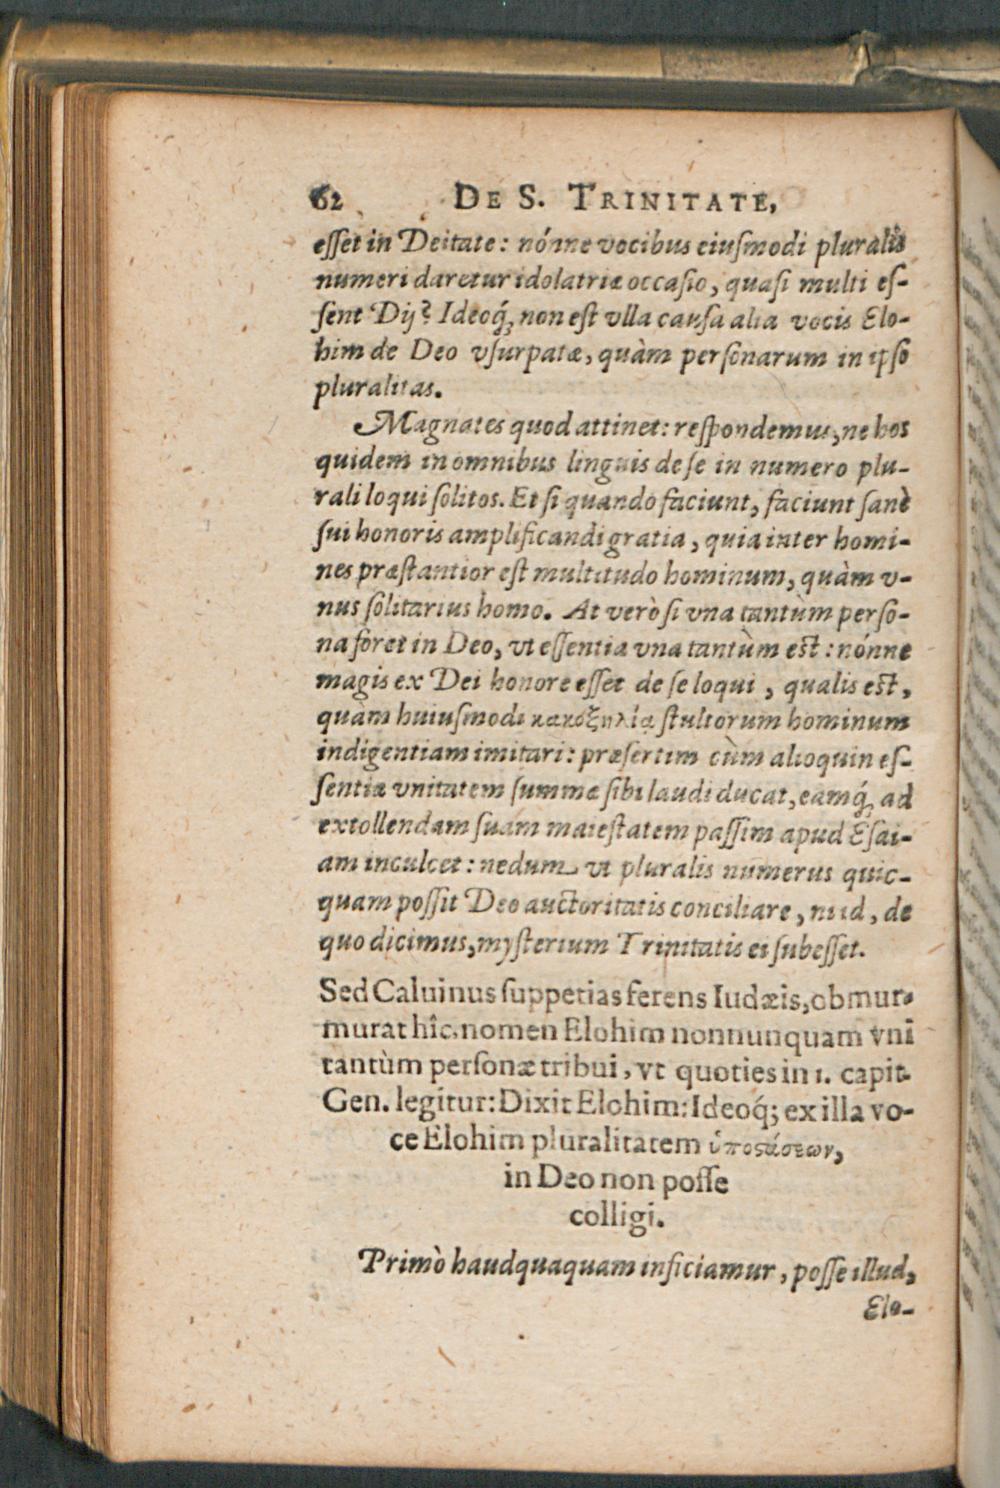 62 DE S. TRINITATE,
esset in Deitate: nónne vocibus eiusmodi pluralis
numeri daretur idolatriæ occasio, quasi multi es-
sent Dij? Ideoq́; non est vlla causa alia vocis Elo-
him de Deo vsurpatæ, quàm personarum in ipso
pluralitas.
Magnates quod attinet: respondemus, ne hos
quidem in omnibus linguis de se in numero plu-
rali loqui solitos. Et si quando faciunt, faciunt sanè
sui honoris amplificandi gratia, quia inter homi-
nes præstantior est multitudo hominum, quàm v-
nus solitarius homo. At verò si vna tantùm perso-
na foret in Deo, vt essentia vna tantùm est: nónne
magis ex Dei honore esset de se loqui, qualis est,
quàm huiusmodi κακοζηλίᾳ stultorum hominum
indigentiam imitari: præsertim cùm alioquin es-
sentiæ vnitatem summæ sibi laudi ducat, eamq́; ad
extollendam suam maiestatem passim apud Esai-
am inculcet: nedum vt pluralis numerus quic-
quam possit Deo auctoritatis conciliare, nisi id, de
quo dicimus, mysterium Trinitatis ei subesset.
Sed Caluinus suppetias ferens Iudæis, obmur-
murat hîc, nomen Elohim nonnunquam vni
tantùm personæ tribui, vt quoties in 1. capit.
Gen. legitur: Dixit Elohim: Ideoq́; ex illa vo-
ce Elohim pluralitatem ὑποστάσεων,
in Deo non posse
colligi.
Primò haudquaquam inficiamur, posse illud,
Elo-